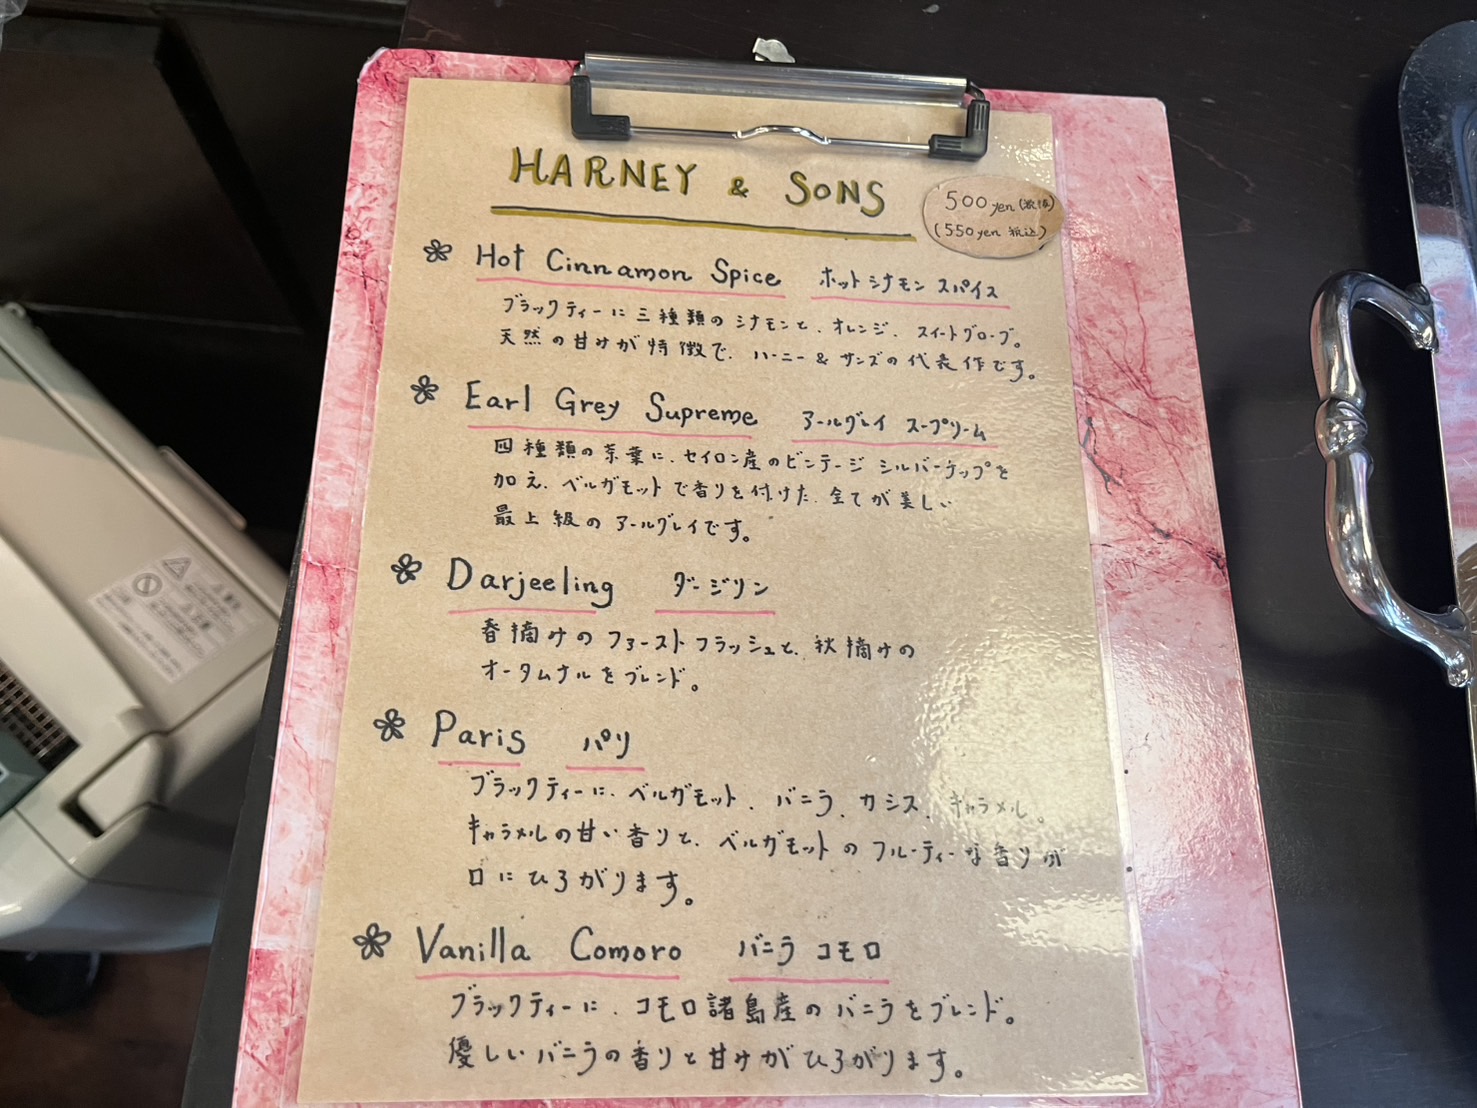 HARNEY & SONS
500yen(税抜)
(550yen 税込)
Hot Cinnamon Spice ホットシナモンスパイス
ブラックティーに三種類のシナモンと、オレンジ、スイートグローブ。
天然の甘みが特徴で、ハーニー&サンズの代表作です。
Earl Grey Supreme アールグレイ スープリーム
四種類の茶葉に、セイロン産のビンテージ シルバーチップを
加え、ベルガモットで香りを付けた、全てが美しい
最上級のアールグレイです。
Darjeeling ダージリン
春摘みのファーストフラッシュと、秋摘みの
オータムナルをブレンド。
Paris パリ
ブラックティーに、ベルガモット、バニラ、カシス、キャラメル。
キャラメルの甘い香りと、ベルガモットのフルーティーな香りが
口にひろがります。
Vanilla Comoro バニラ コモロ
ブラックティーに、コモロ諸島産のバニラをブレンド。
優しいバニラの香りと甘みがひろがります。